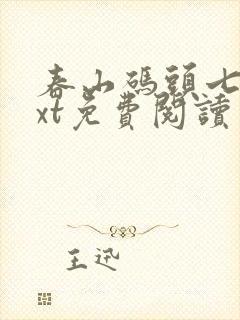 春山碼頭七
xt免費閱讀
王迅